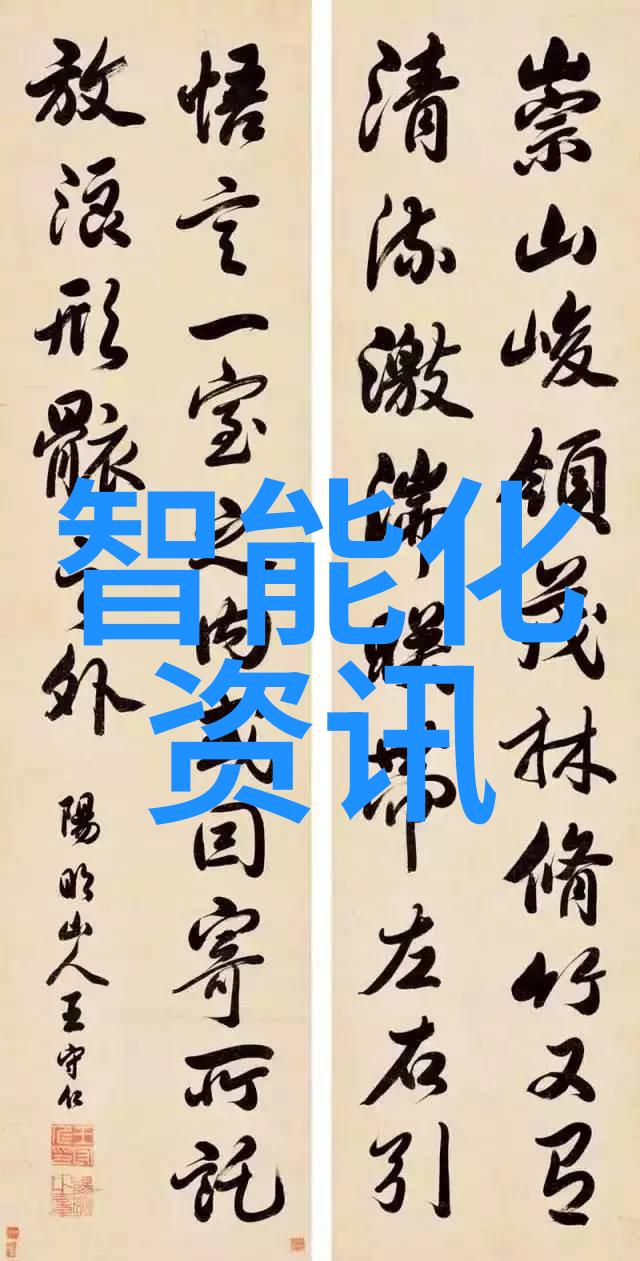 崇山峻領茂林脩竹又有
清流激湍暎帶左右引
悟言一室之内或因寄所託
放浪形骸之外
陽明山人王守仁
智能化
资讯